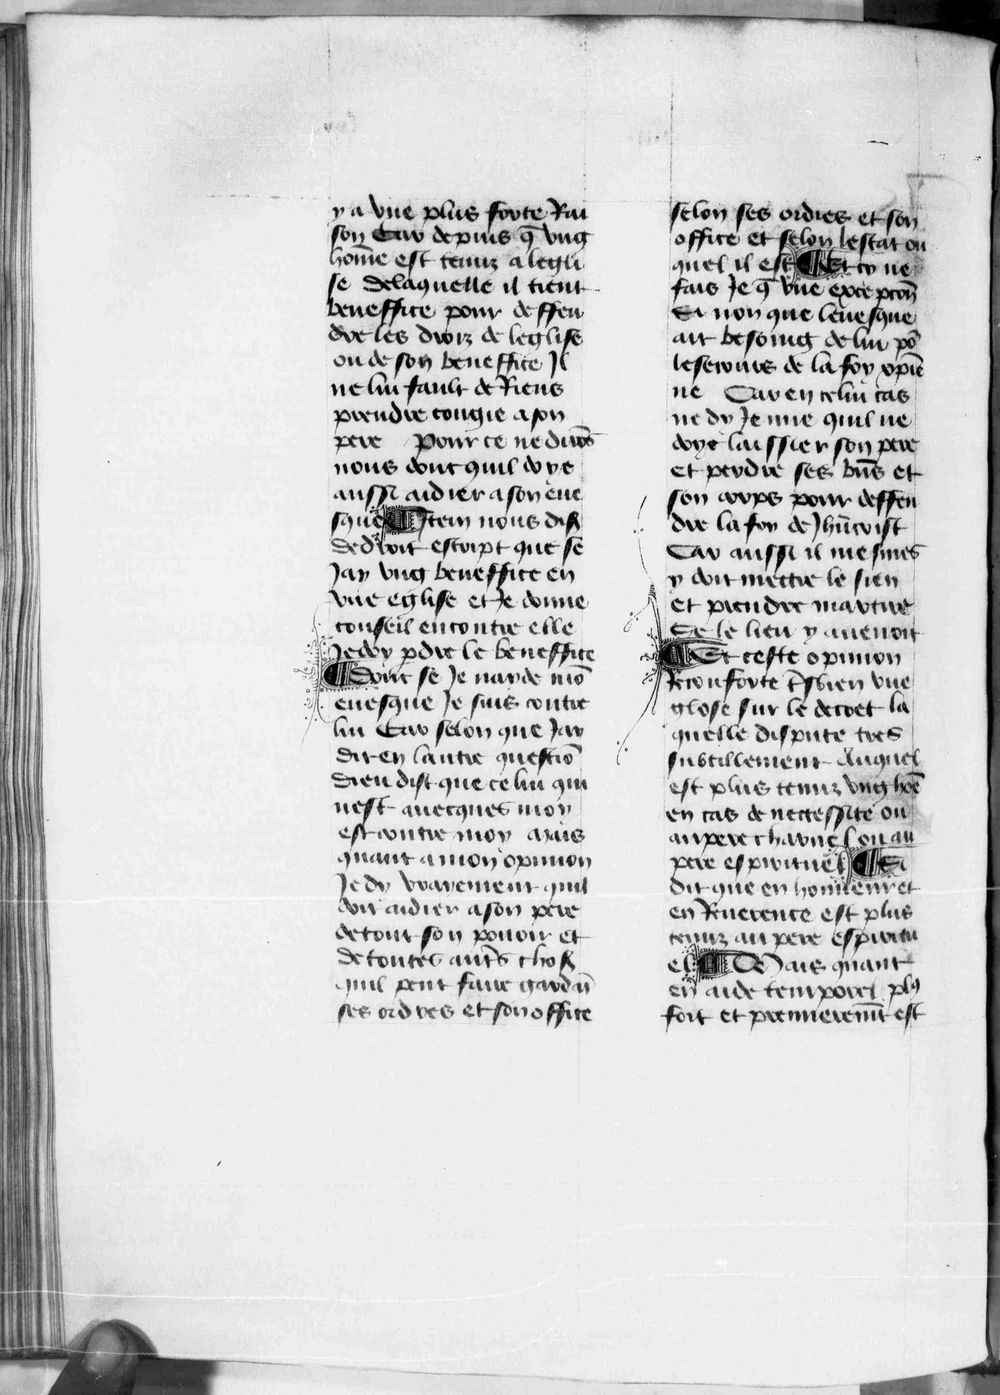 y a vne plus forte Rai
son Car depuis q̄ vng
hom̄e est tenuz a legli
se delaquelle il tient
beneffice pour deffen
dre les droiz de leglise
ou de son beneffice Il
ne lui fault de Riens
prendre congie a son
pere Pour ce ne dirōs
nous dont quil doye
aussi aidier a son eue
sque ¶ Item nous dist
de droit escript que se
Jay vng beneffice en
vne eglise et Je donne
conseil encontre elle
Je doy p̱dre le beneffice
¶ Donc se Je nayde mō
euesque Je suis contre
lui Car selon que Jay
dit en lautre questiō
dieu dist que celui qui
nest auecques moy
est contre moy Mais
quant a mon opinion
Je dy vrayement quil
doit aidier a son pere
de tout son pouoir et
de toutes aut̄s chos̄
quil peut faire gardāt
ses ordres et son office
selon ses ordres et son
office et selon lestat ou
quel il est ¶ Et cy ne
fais Je q̄ vne excepcōn
Si non que leuesque
ait besoing de lui po͛
le secours de la foy xpiē
ne Car en celui cas
ne dy Je mie quil ne
doye laissier son pere
et perdre ses bn̄s et
son corps pour deffen
dre la foy de Jhūcrist
Car aussi il mesmes
y doit mettre le sien
et prendre martire
Se le lieu y auenoit
¶ Et ceste opinion
Reconforte tresbien vne
glose sur le decret la
quelle dispute tres
subtillement Auquel
est plus tenuz vng hōe
en cas de necessite ou
au pere charnel ou au
pere espirituel ¶ Et
dit que en honneur et
en Reuerence est plus
tenuz au pere espiritu
el ¶ Mais quant
en aide temporel plꝰ
fort et premieremēt est